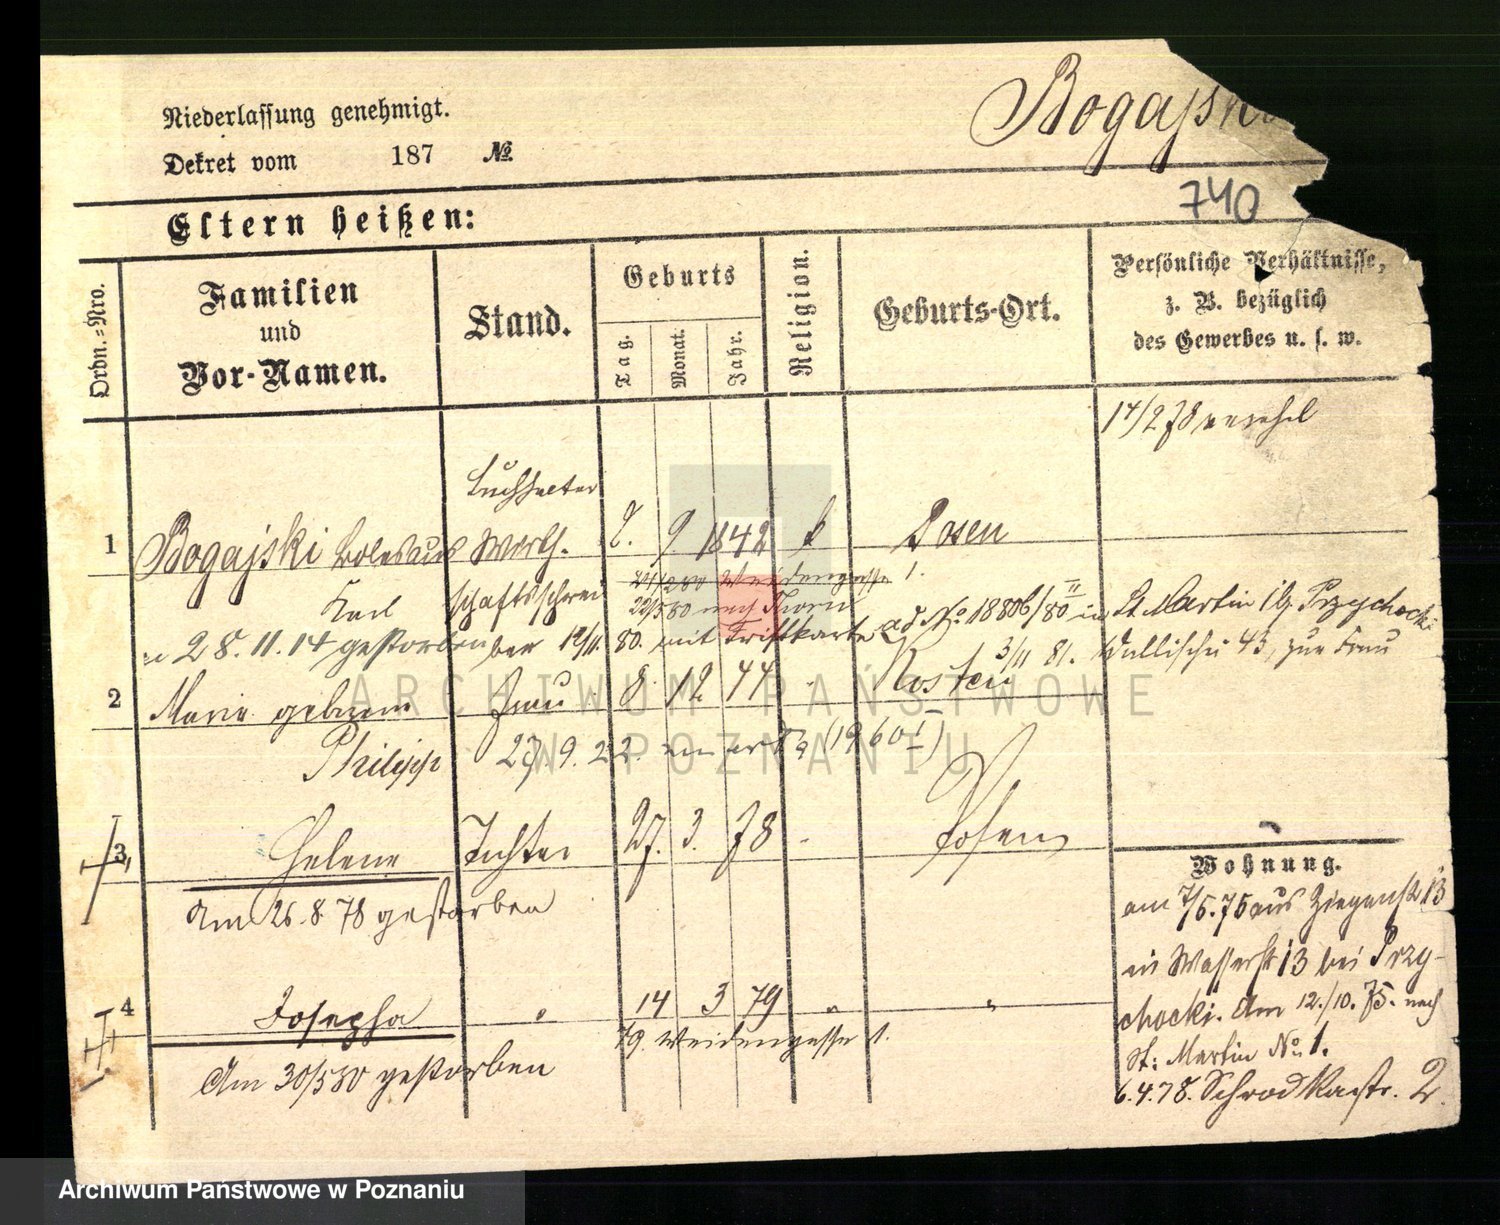 Niederlassung genehmigt.
Dekret vom 187 No
Bogajski
740
Eltern heißen:
Ordn.-Nro.
Familien und Vor-Namen.
Stand.
Geburts
Tag.
Monat.
Jahr.
Religion.
Geburts-Ort.
Persönliche Verhältnisse,
z. B. bezüglich
des Gewerbes u. s. w.
14/2 78
Buchhalter
1 Bogajski Boleslaus Wirth- 2. 9. 1842 k Posen
Karl schaftsschrei
Weidengasse 1.
22/5 80 nach Thorn
28.11.14 gestorben ber 12/11. 80. mit Triftkarte ad No 18806/80 II in St. Martin 19 Przychocki
3/11 81. Wallischei 43, zur Frau
2 Marie geborene Frau 8. 12 44 - Kosten
Philipp 27.9.22. (1960 I)
3, Helene Tochter 27. 3. 78 - Posen
Am 26.8.78 gestorben
4 Josepha " 14 3 79 " "
79. Weidengasse 1.
Am 30/5 80 gestorben
Wohnung.
am 7/5.75 aus Ziegenstr 13
in Wasserstr 13 bei Przy-
chocki. Am 12./10. 75. nach
St: Martin No 1.
6.4.78. Schrodkastr. 2.
ARCHIWUM PAŃSTWOWE
W POZNANIU
Archiwum Państwowe w Poznaniu